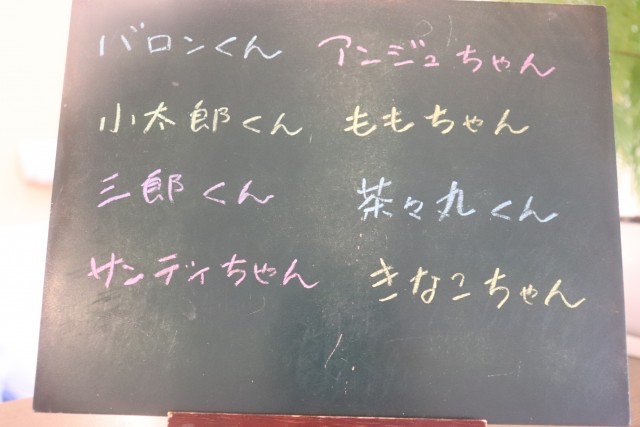 バロンくん アンジュちゃん
小太郎くん ももちゃん
三郎くん 茶々丸くん
サンディちゃん きなこちゃん